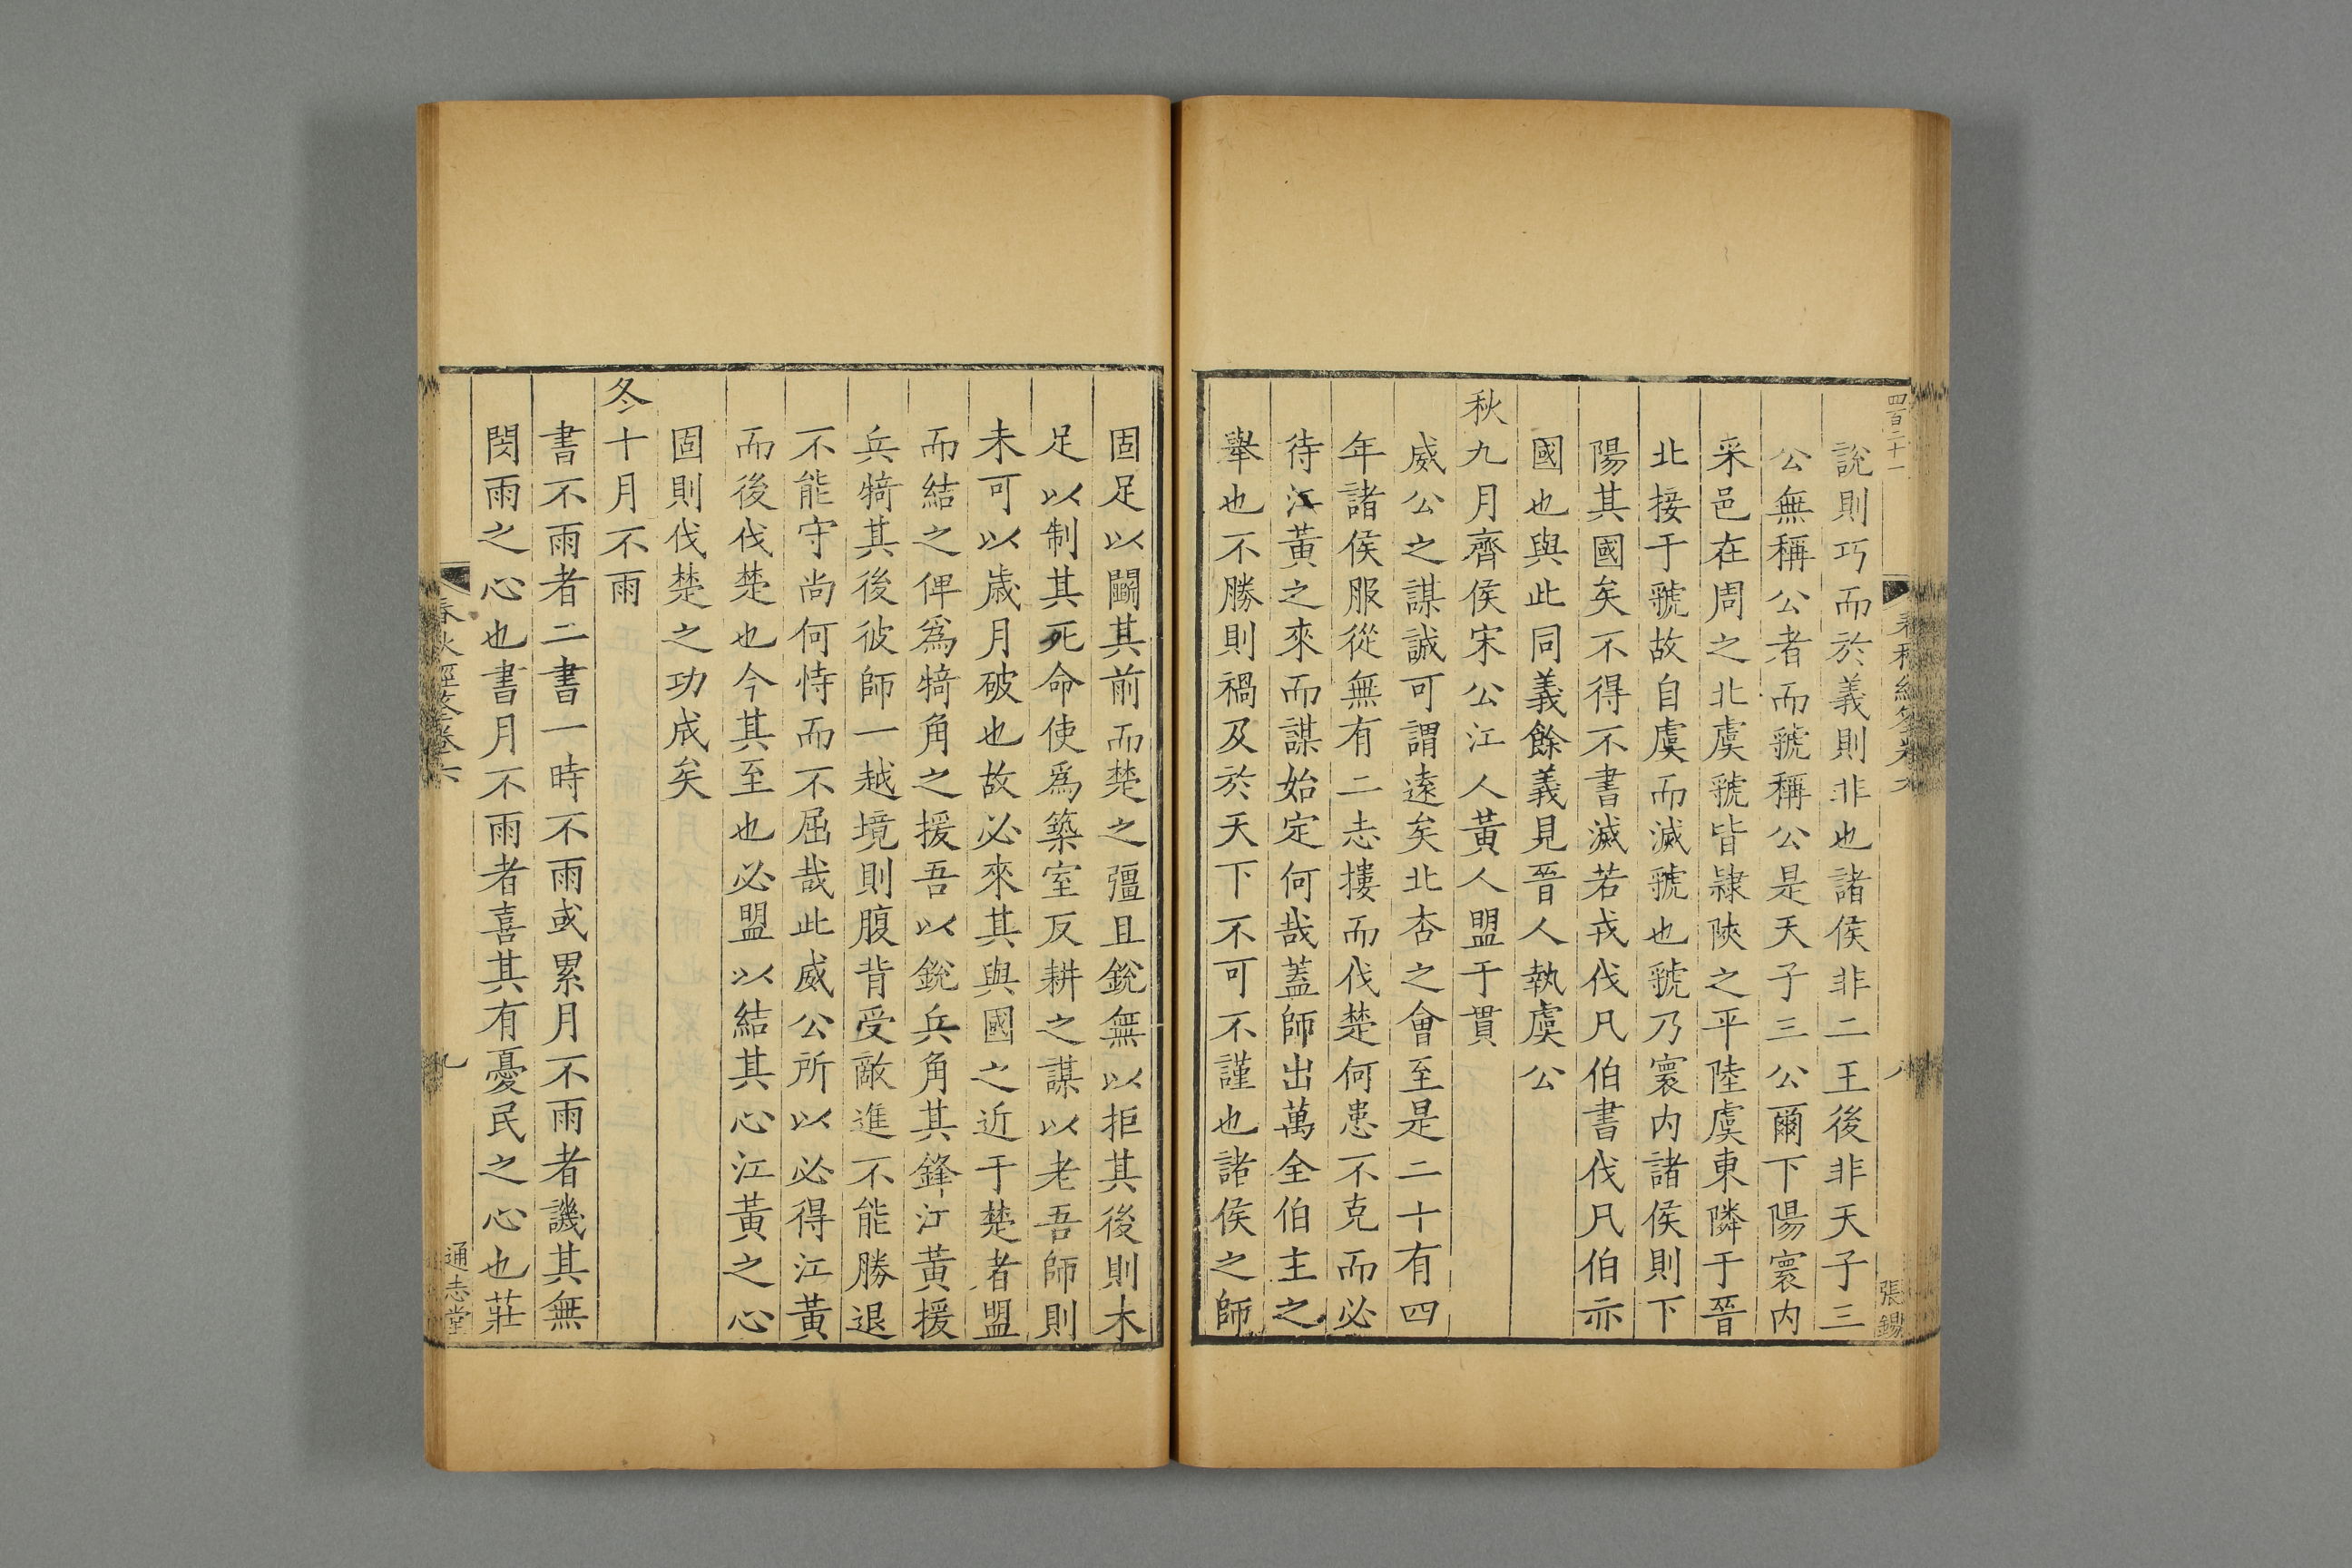 四百二十一
說則巧而於義則非也諸侯非二王後非天子三
公無稱公者而虢稱公是天子三公爾下陽寰内
采邑在周之北虞虢皆隷陜之平陸虞東隣于晉
北接于虢故自虞而滅虢也虢乃寰内諸侯則下
陽其國矣不得不書滅若戎伐凡伯書伐凡伯亦
國也與此同義餘義見晉人執虞公
秋九月齊侯宋公江人黃人盟于貫
威公之謀誠可謂遠矣北杏之會至是二十有四
年諸侯服從無有二志摟而伐楚何患不克而必
待江黃之來而謀始定何哉蓋師出萬全伯主之
舉也不勝則禍及於天下不可不謹也諸侯之師
張錫
固足以鬭其前而楚之彊且銳無以拒其後則木
足以制其死命使爲築室反耕之謀以老吾師則
未可以歲月破也故必來其與國之近于楚者盟
而結之俾爲犄角之援吾以銳兵角其鋒江黃援
兵犄其後彼師一越境則腹背受敵進不能勝退
不能守尚何恃而不屈哉此威公所以必得江黃
而後伐楚也今其至也必盟以結其心江黃之心
固則伐楚之功成矣
冬十月不雨
書不雨者二書一時不雨或累月不雨者譏其無
閔雨之心也書月不雨者喜其有憂民之心也莊
春秋經筌卷六
九
通志堂